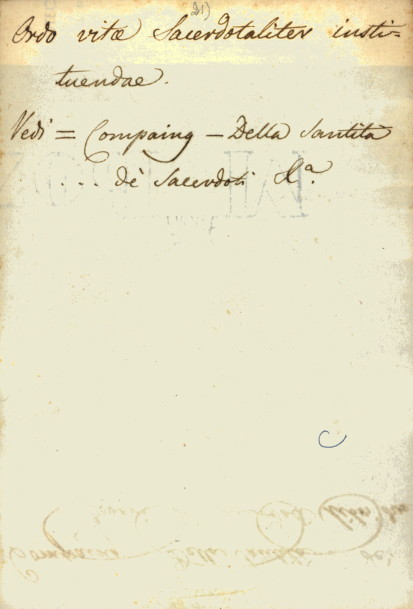 21)
Ordo vitæ Sacerdotaliter insti=
tuendae.
Vedi = Compaing — Della Santità
.... de' Sacerdoti &a.